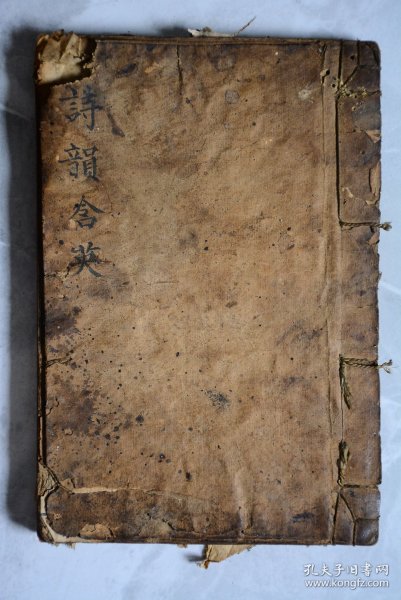 詩韻含英
孔夫子旧书网
www.kongfz.com